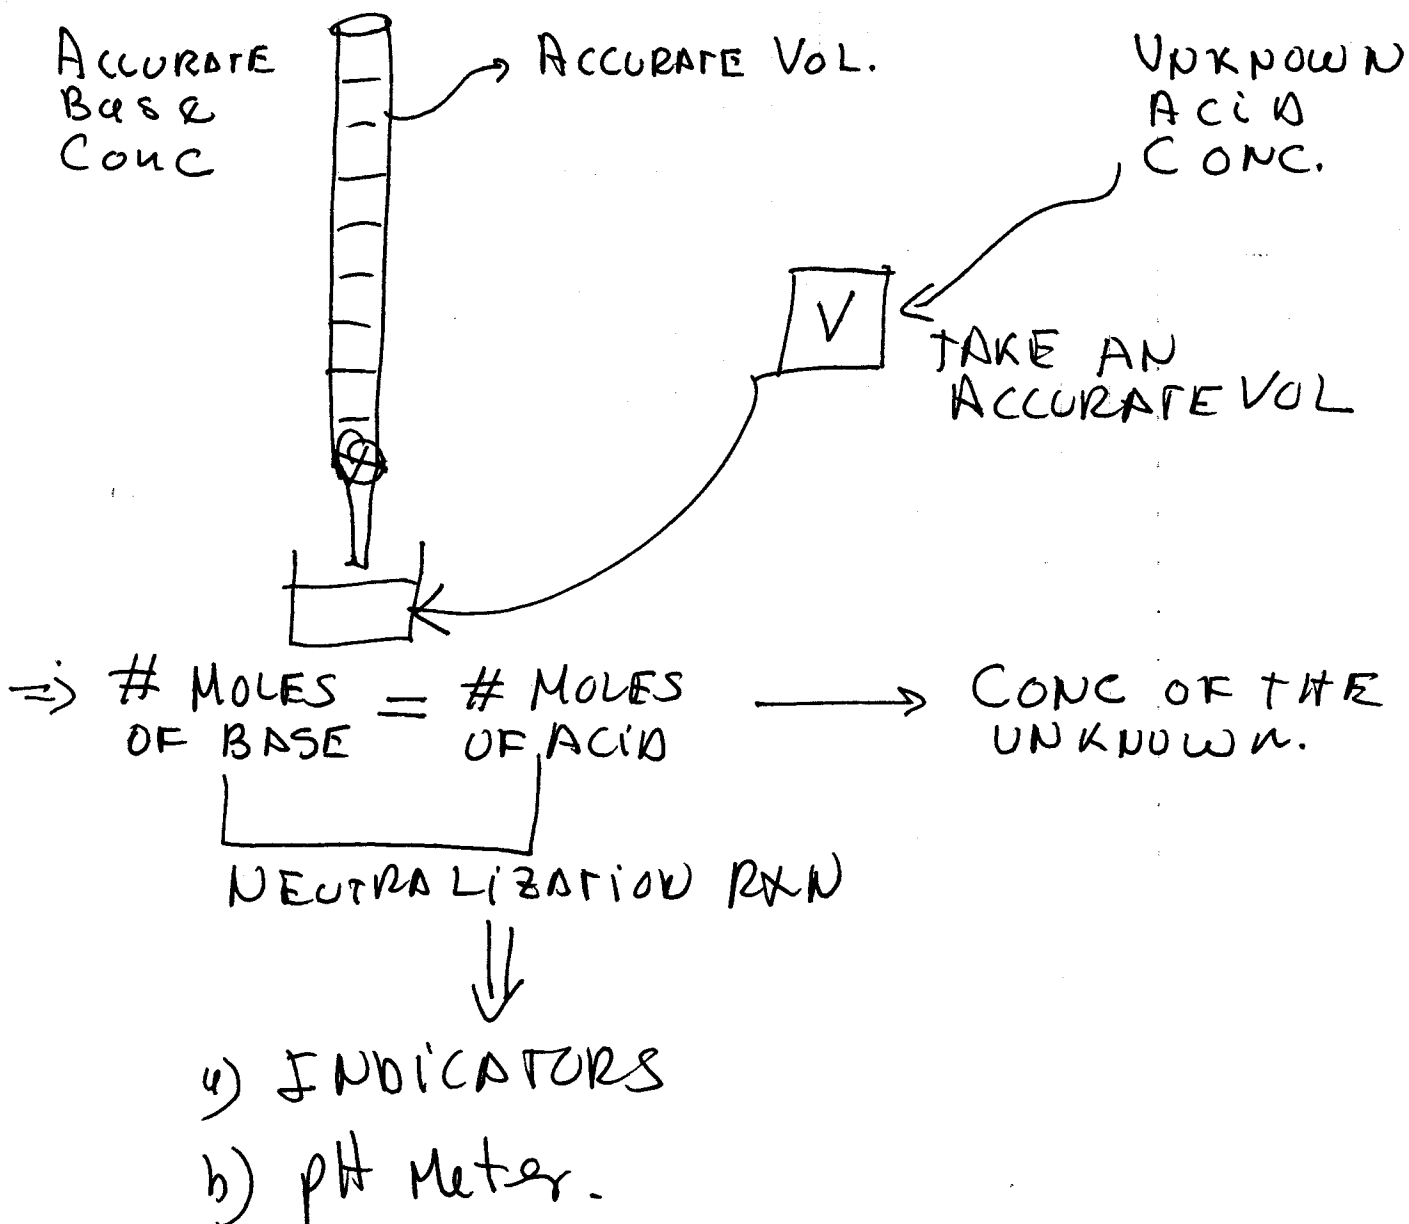 ACCURATE
Base
Conc
ACCURATE VOL.
UNKNOWN
ACiD
CONC.
V
TAKE AN
ACCURATE VOL
⇒ # MOLES
OF BASE
=
# MOLES
OF ACiD
→
CONC OF THE
UNKNOWN.
NEUTRALiZATiON RXN
a) INDiCATORS
b) pH Meter.